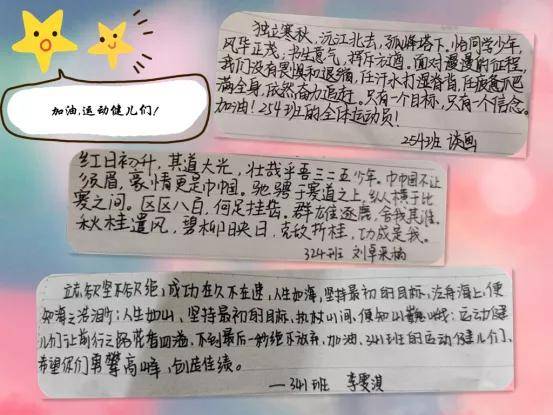 加油,运动健儿们!
独立寒秋，沅江北去，孤峰塔下，恰同学少年，
风华正茂，书生意气，挥斥方遒，面对漫漫的征程，
我们没有畏惧和退缩，任汗水打湿脊背，任疲惫爬
满全身，依然奋力追赶。只有一个目标，只有一个信念。
加油！254班的全体运动员！
254班 谈画
红日初升，其道大光，壮哉乎吾三二五少年。巾帼不让
须眉，豪情更是巾帼。驰骋于赛道之上，纵横于比
赛之间。区区八百，何足挂齿。群雄逐鹿，舍我其谁。
秋桂遣风，碧柳映日，克敌折桂，功成是我。
324班 刘卓采楠
立志欲坚不欲锐，成功在久不在速，人生如海，坚持最初的目标，泛舟海上，便
知海之浩淼；人生如山、坚持最初的目标，执杖山间，便知山巍峨；运动健
儿们让前行之路花香四溢，不到最后一秒绝不放弃，加油、341班的运动健儿们、
希望你们勇攀高峰，创造佳绩。
—341班 李雯淇